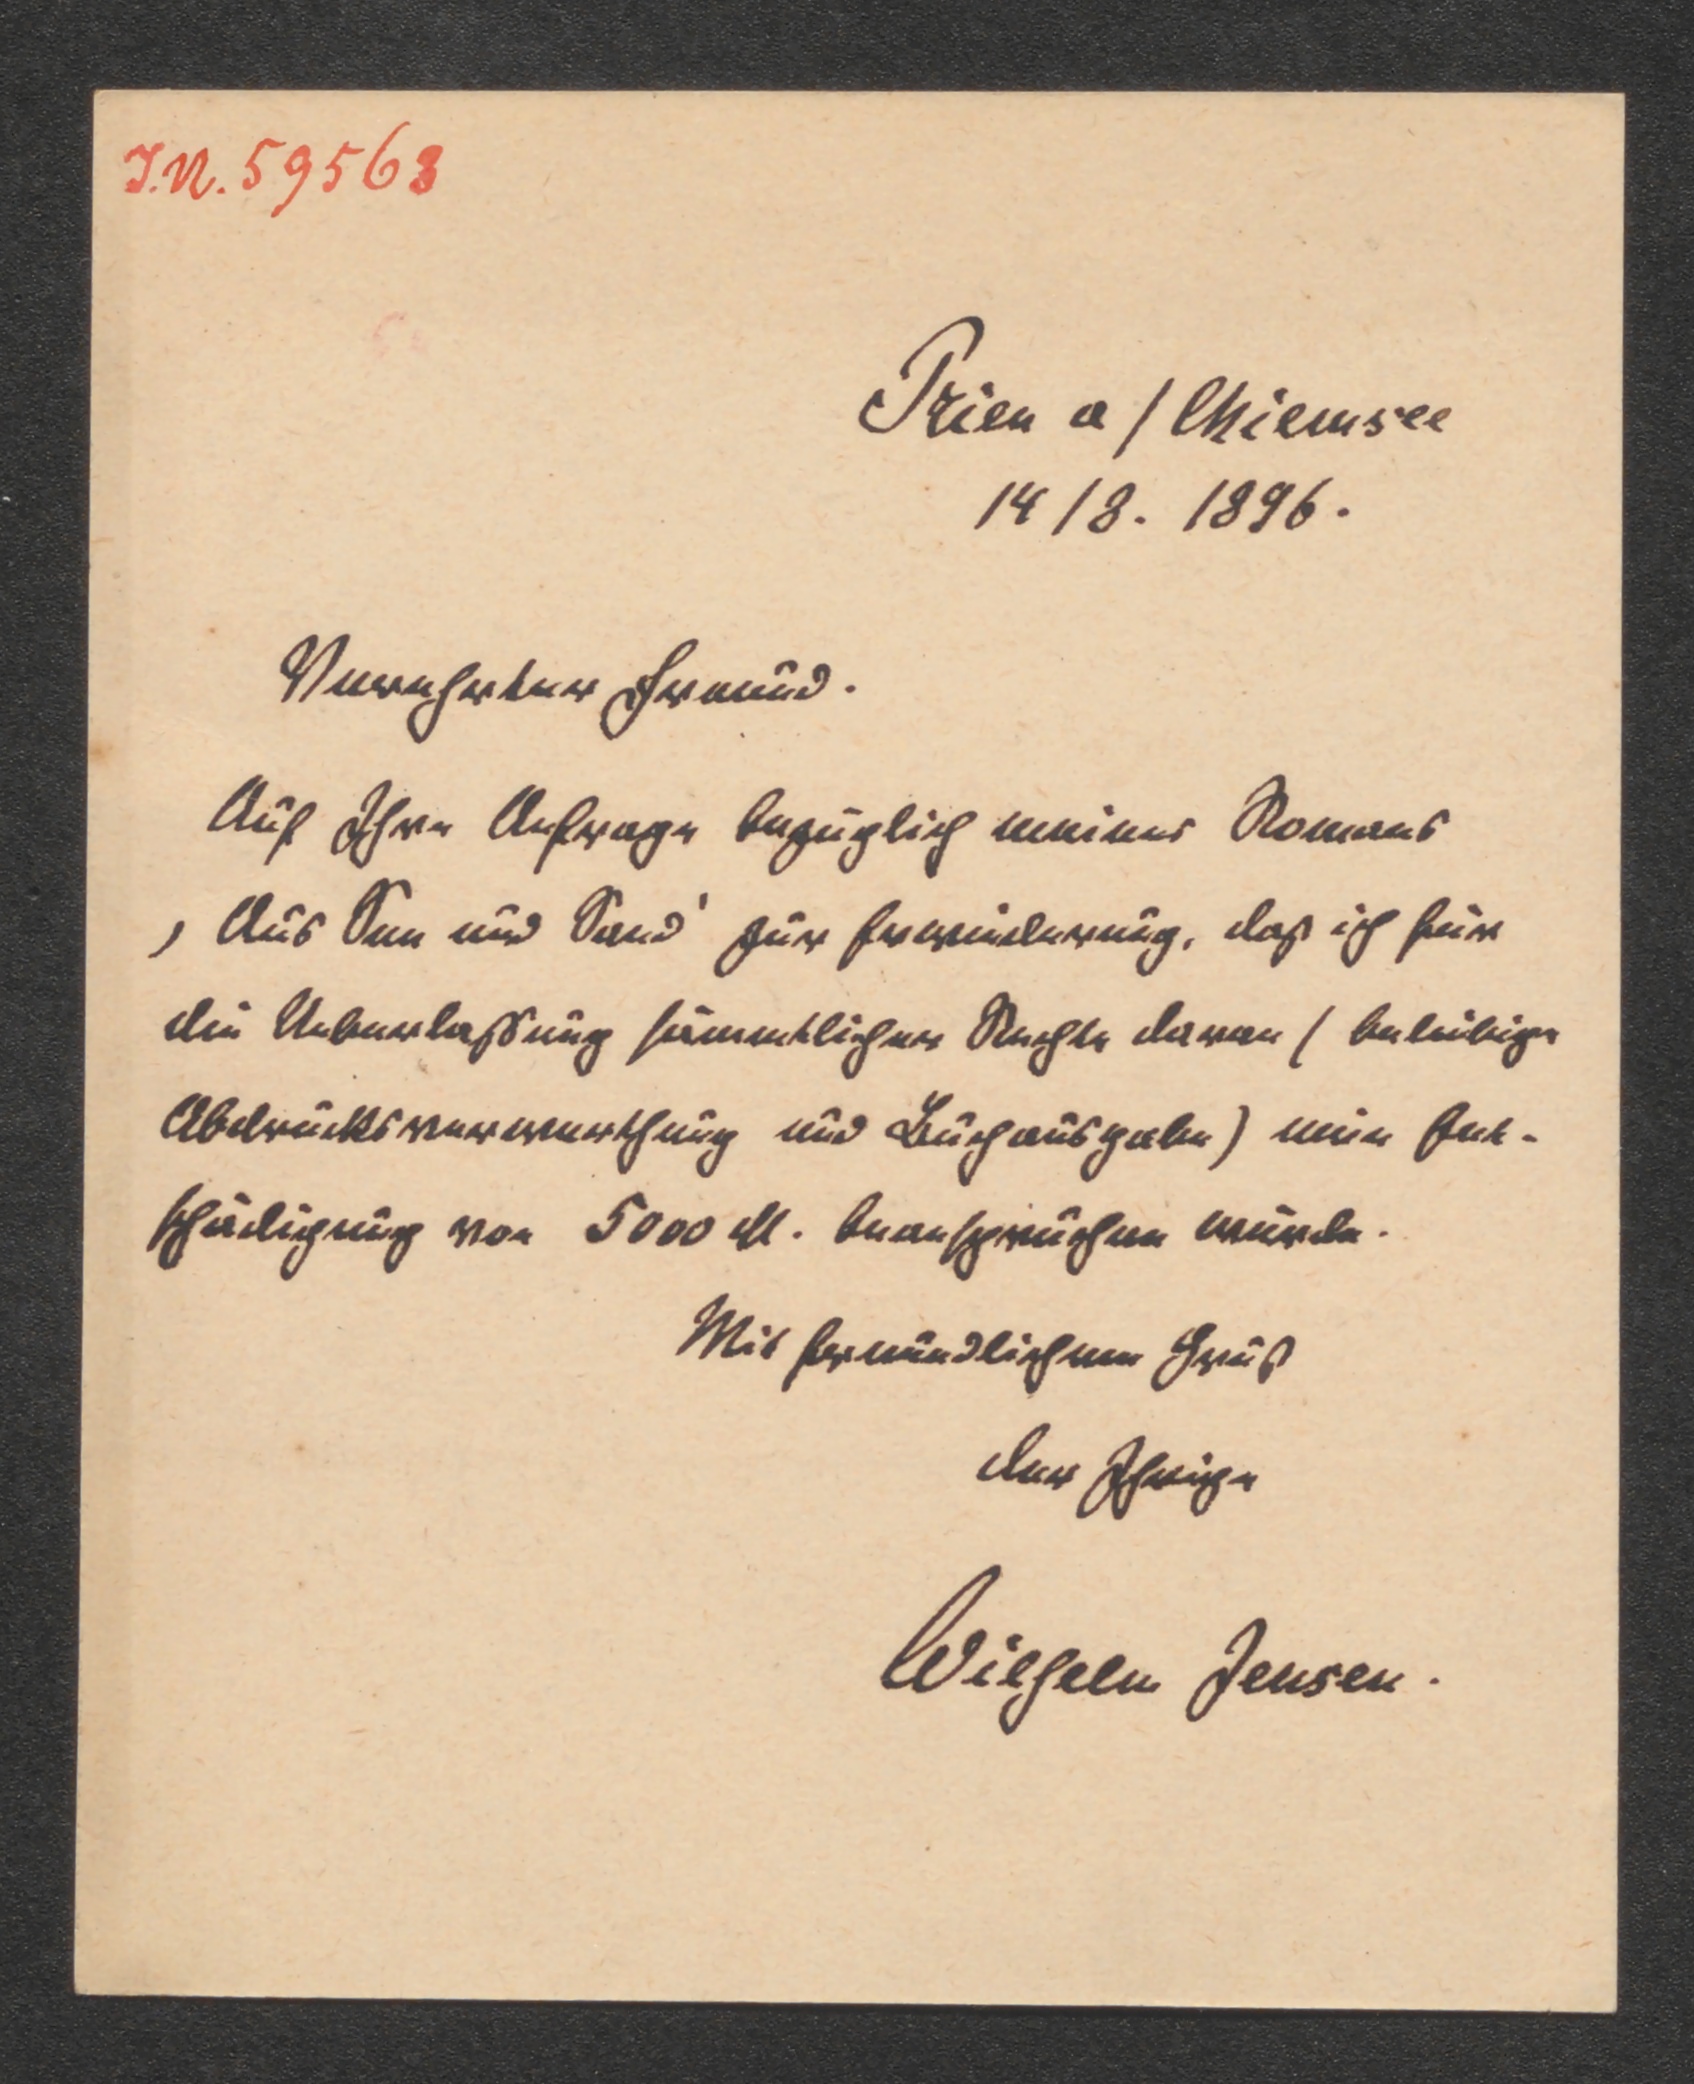 I.N. 59568
Prien a / Chiemsee
14 / 8. 1896.
Verehrter Freund.
Auf Ihre Anfrage bezüglich meines Romans
, Aus See und Sand' zur Erwiderung, daß ich für
die Ueberlassung sämmtlicher Rechte daran ( beliebige
Abdrucksverwerthung und Buchausgabe) eine Ent-
schädigung von 5000 M. beanspruchen würde.
Mit freundlichem Gruß
der Ihrige
Wilhelm Jensen.